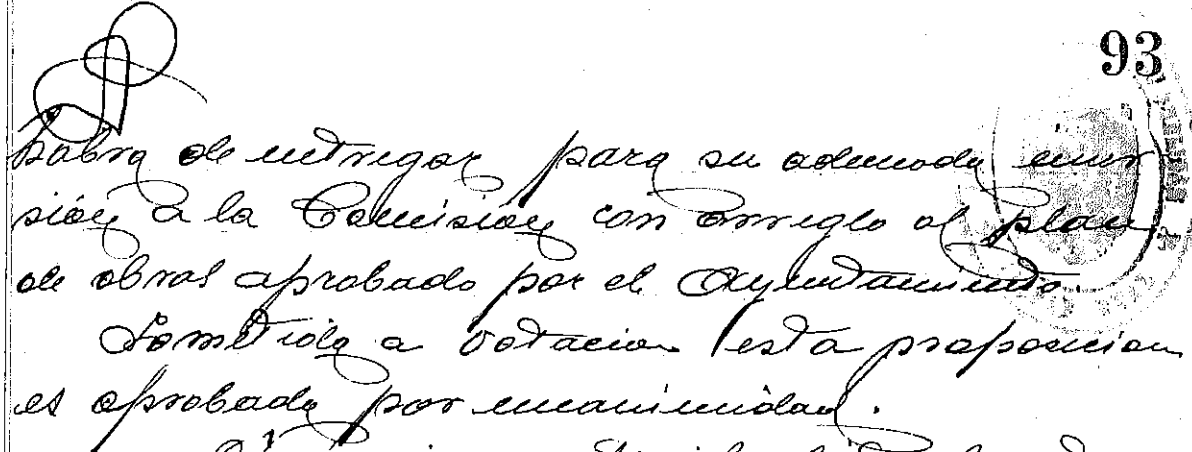 93
habra de entregar para su adecuada inver
sión a la Comisión con arreglo al plan
de obras aprobado por el Ayuntamiento.
Sometida a votacion esta proposicion
es aprobada por unanimidad.